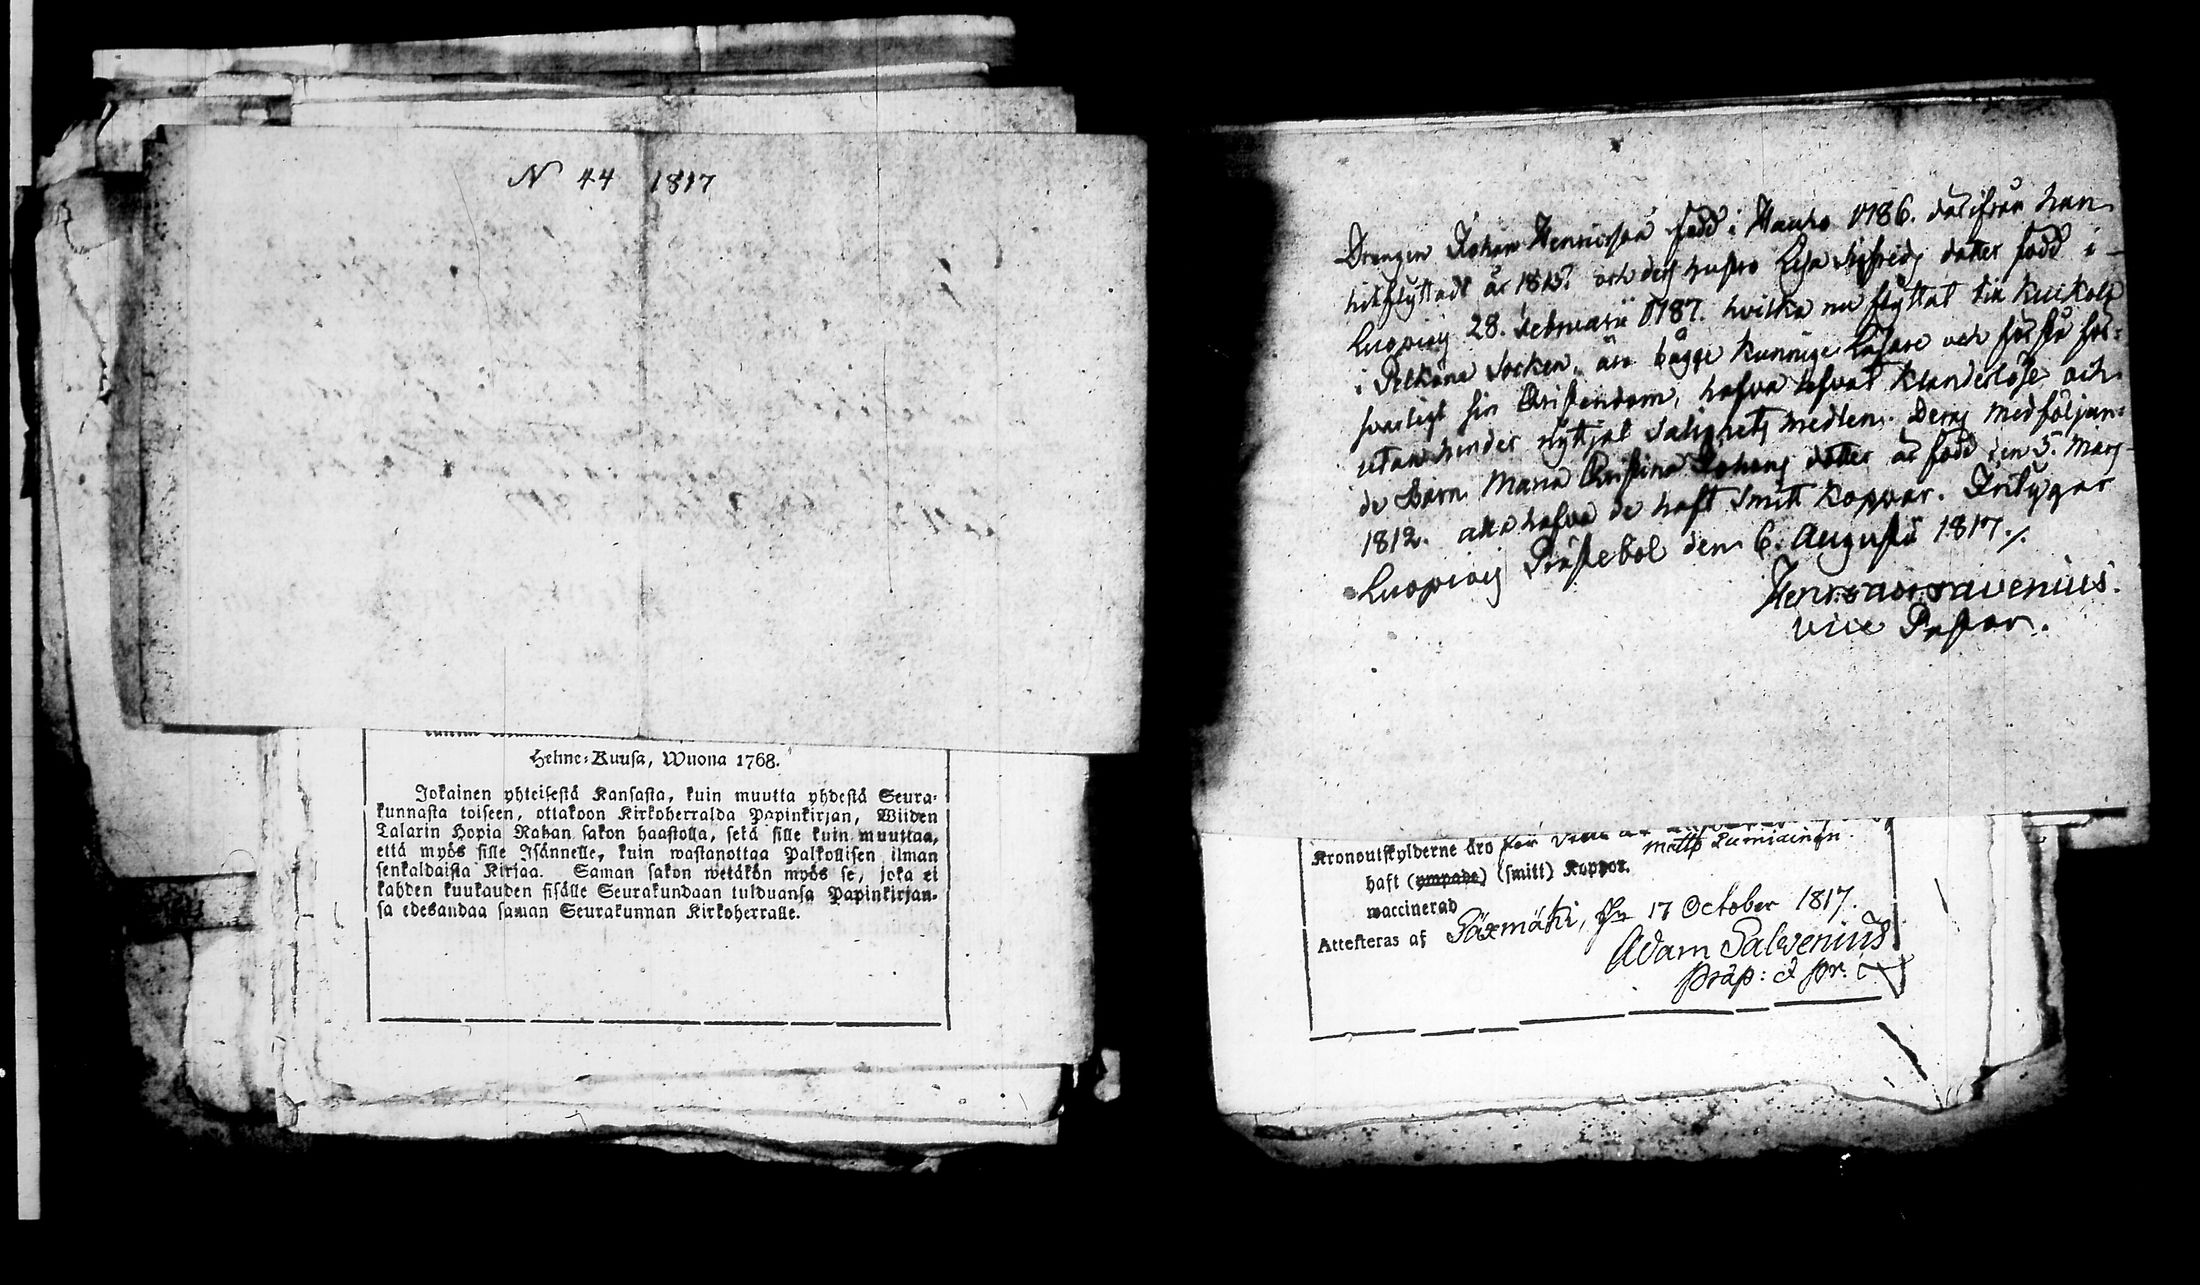 N 44 1817
Helme-Kuusa, Wuona 1768.
Jokainen yhteisestä Kansasta, kuin muutta yhdestä Seura-
kunnasta toiseen, ottakoon Kirkoherralda Papinkirjan, Wiiden
Talarin Hopia Rahan sakon haastolla, sekä sille kuin muuttaa,
että myös sille Isännelle, kuin wastanottaa Palkollisen ilman
senkaldaista Kirjaa. Saman sakon wetäkön myös se, joka ei
kahden kuukauden sisälle Seurakundaan tulduansa Papinkirjan-
sa edesandaa saman Seurakunnan Kirkoherralle.
Drengen Johan Henricsson född i Hauho 1786. därifrån han
hitflyttadt år 1815. och dess hustru Lisa Sigfrids dotter född i
Luopiois 28. Februarii 1787. hvilka nu flyttat till Kuikola
i Pelkäne Socken, äro bägge kunnige läsare och förstå för-
svarligt sin Christendom, hafva lefvat klanderlöse och
utan hinder nyttjat Salighets medlen. Deras medföljan-
de Barn Maria Christina Johans dotter är född den 5. Mars
1812. alla hafva de haft Smitt koppor. Betygar
Luopiois Prästebol den 6. Augusti 1817./.
Henr: Savenius.
vice Pastor.
Kronoutskylderne äro för
Matts Lumiainen.
haft (ympade) (smitt) Koppor.
waccinerad
Attesteras af Säxmäki, 17 October 1817.
Adam Salvenius
Präp: & Pr.